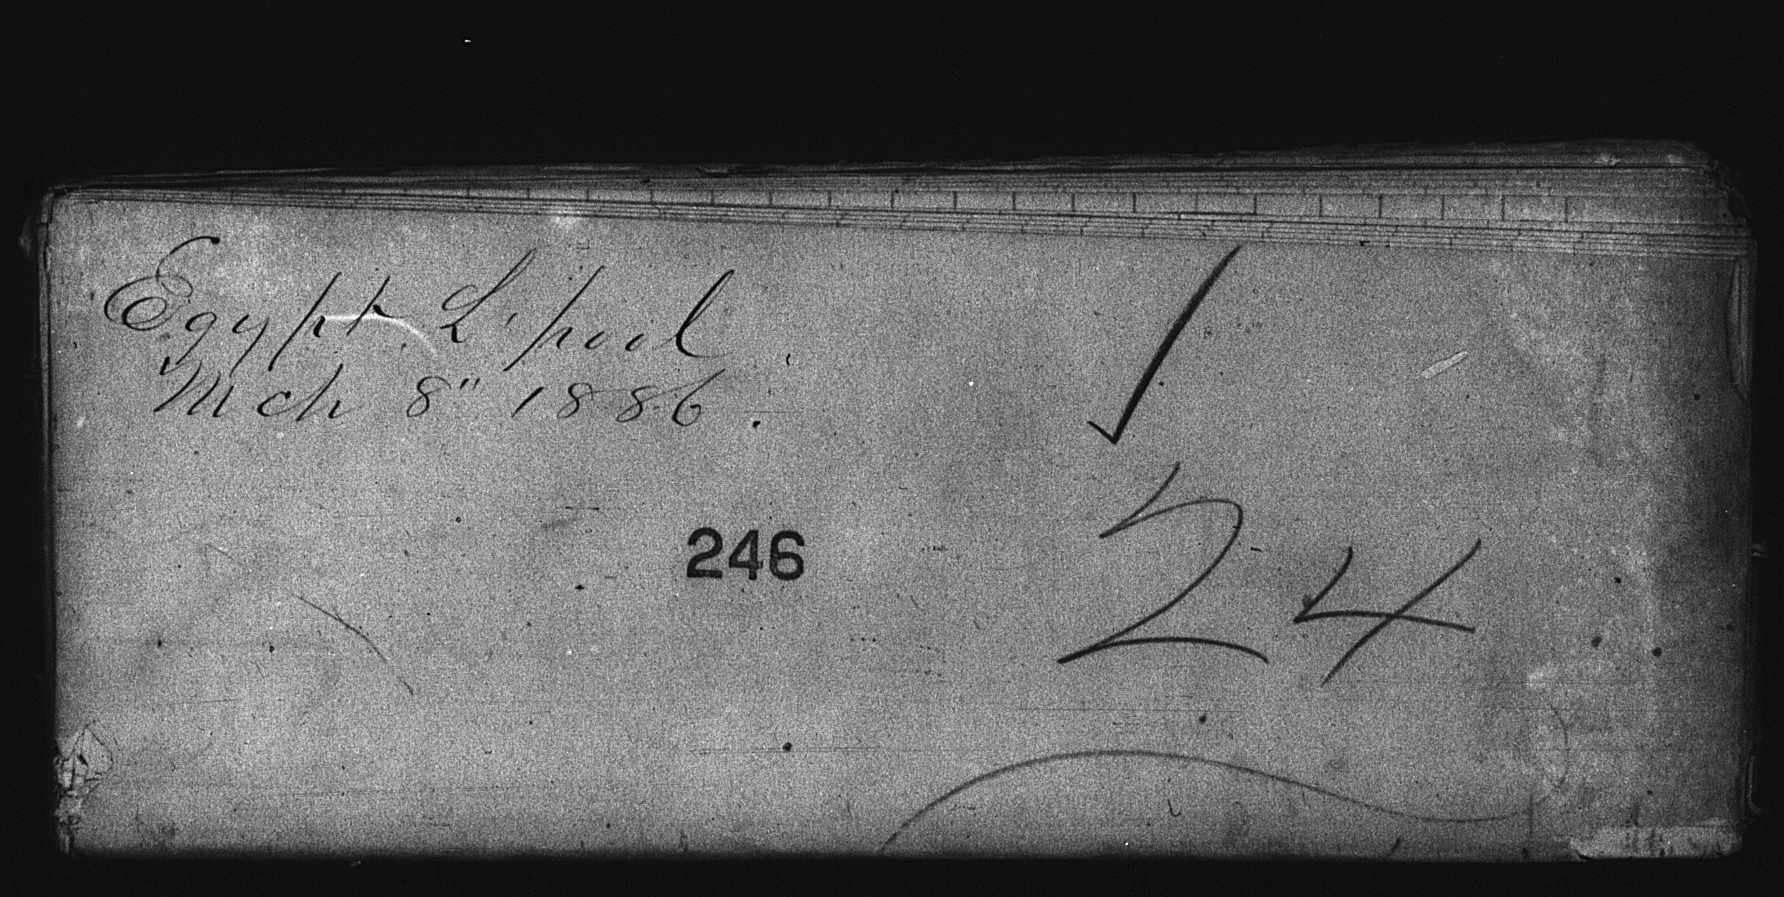 Egypt L'pool
Mch 8" 1886.
246
24